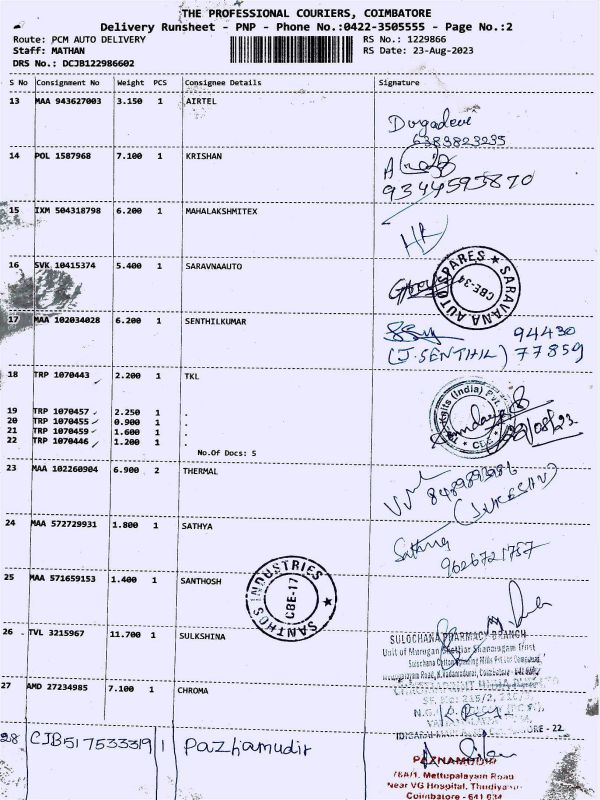 THE PROFESSIONAL COURIERS, COIMBATORE
Delivery Runsheet - PNP - Phone No.:0422-3505555 - Page No.:2
Route: PCM AUTO DELIVERY
RS No.: 1229866
Staff: MATHAN
RS Date: 23-Aug-2023
DRS No.: DCJB122986602
S No Consignment No Weight PCS Consignee Details Signature
13 MAA 943627003 3.150 1 AIRTEL
Durgadevi
6383823235
14 POL 1587968 7.100 1 KRISHAN
9344593870
15 IXM 504318798 6.200 1 MAHALAKSHMITEX
16 SVK 10415374 5.400 1 SARAVNAAUTO
SARAVANA AUTO SPARES ★
CBE-34
17 MAA 102034028 6.200 1 SENTHILKUMAR
94430
(J.SENTHIL) 77859
18 TRP 1070443 2.200 1 TKL
19 TRP 1070457 2.250 1 .
20 TRP 1070455 0.900 1 .
21 TRP 1070459 1.600 1 .
22 TRP 1070446 1.200 1 .
No.Of Docs: 5
(India) Pvt.
23 MAA 102260904 6.900 2 THERMAL
24 MAA 572729931 1.800 1 SATHYA
Sathya
9626721757
25 MAA 571659153 1.400 1 SANTHOSH
SANTHOS INDUSTRIES ★
CBE-17
26 TVL 3215967 11.700 1 SULKSHINA
SULOCHANA PHARMACY BRANCH
Unit of Murugan Shanmugam Trust
Sulochana Cotton Spinning Mills Pvt Ltd
Mettupalayam Road, Coimbatore
27 AMD 27234985 7.100 1 CHROMA
28 CJB517533319 1 Pazhamudir
PAZHAMUDIR
78A/1, Mettupalayam Road
Near VG Hospital, Thudiyalur
Coimbatore - 641 034